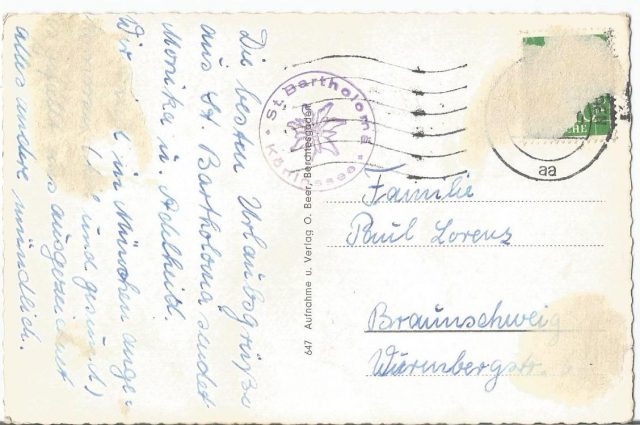 Die besten Urlaubsgrüße
aus St. Bartholomä sendet
Monika u. Adelheid.
Wir in München ange-
und gesund.)
ausgezeichnet
alles andere mündlich.
St. Bartholomä
Königssee
647 Aufnahme u. Verlag O. Beer, Berchtesgaden
aa
Familie
Paul Lorenz
Braunschweig
Wurmbergstr.